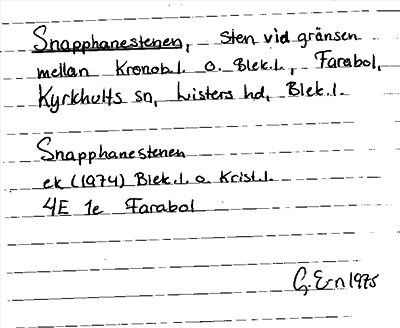 Snapphanestenen, sten vid gränsen
mellan Kronob.l. o. Blek.l., Farabol,
Kyrkhults sn, Listers hd, Blek.l.
Snapphanestenen
ek (1974) Blek.l. o. Krist.l.
4E 1e Farabol
G. Ern 1975